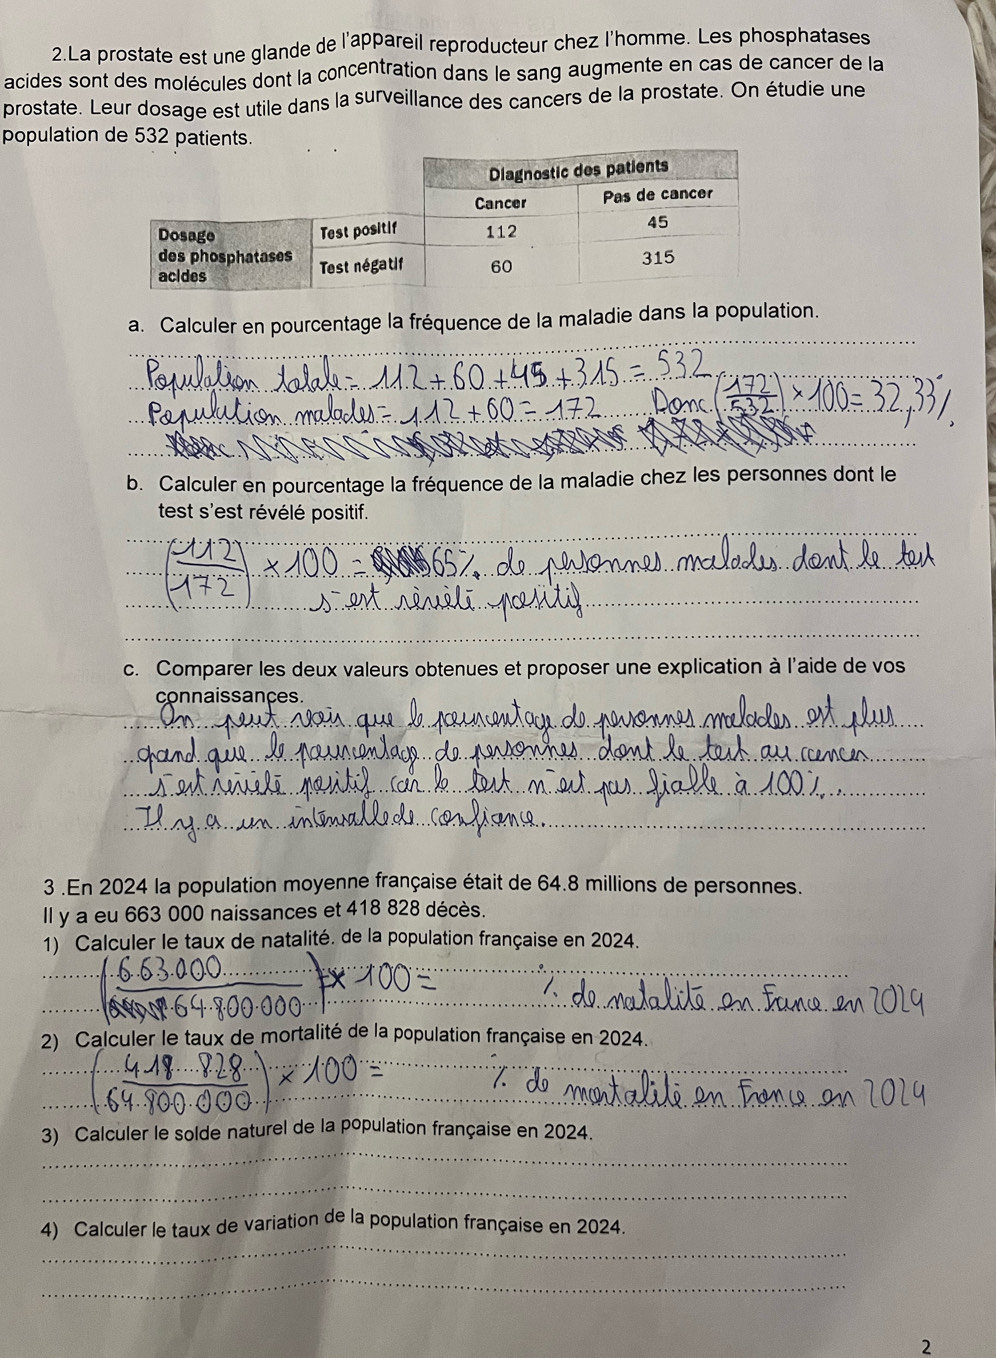 2.La prostate est une glande de l'appareil reproducteur chez l'homme. Les phosphatases
acides sont des molécules dont la concentration dans le sang augmente en cas de cancer de la
prostate. Leur dosage est utile dans la surveillance des cancers de la prostate. On étudie une
population de 532 patients.
Diagnostic des patients
Cancer Pas de cancer
Dosage des phosphatases acides
Test positif 112 45
Test négatif 60 315
a. Calculer en pourcentage la fréquence de la maladie dans la population.
Population totale = 112 + 60 + 45 + 315 = 532
Population malades = 112 + 60 = 172 Donc (172/532) × 100 = 32,33%
b. Calculer en pourcentage la fréquence de la maladie chez les personnes dont le
test s'est révélé positif.
(112/172) × 100 = 65% de personnes malades dont le test
s'est révélé positif
c. Comparer les deux valeurs obtenues et proposer une explication à l'aide de vos
connaissances.
On peut voir que le pourcentage de personnes malades est plus
grand que le pourcentage de personnes dont le test au cancer
s'est révélé positif car le test n'est pas fialle à 100%.
Il y a un intervalle de confiance.
3 .En 2024 la population moyenne française était de 64.8 millions de personnes.
Il y a eu 663 000 naissances et 418 828 décès.
1) Calculer le taux de natalité. de la population française en 2024.
(663 000/64 800 000) × 100 = % de natalité en France en 2024
2) Calculer le taux de mortalité de la population française en 2024.
(418 828/64 800 000) × 100 = % de mortalité en France en 2024
3) Calculer le solde naturel de la population française en 2024.
4) Calculer le taux de variation de la population française en 2024.
2